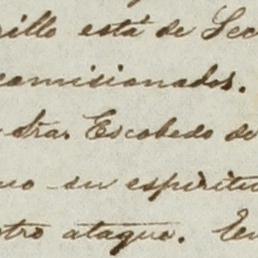 rillo está de Sec
comisionados.
Sra. Escobedo de
no su espiritu
tro ataque. En